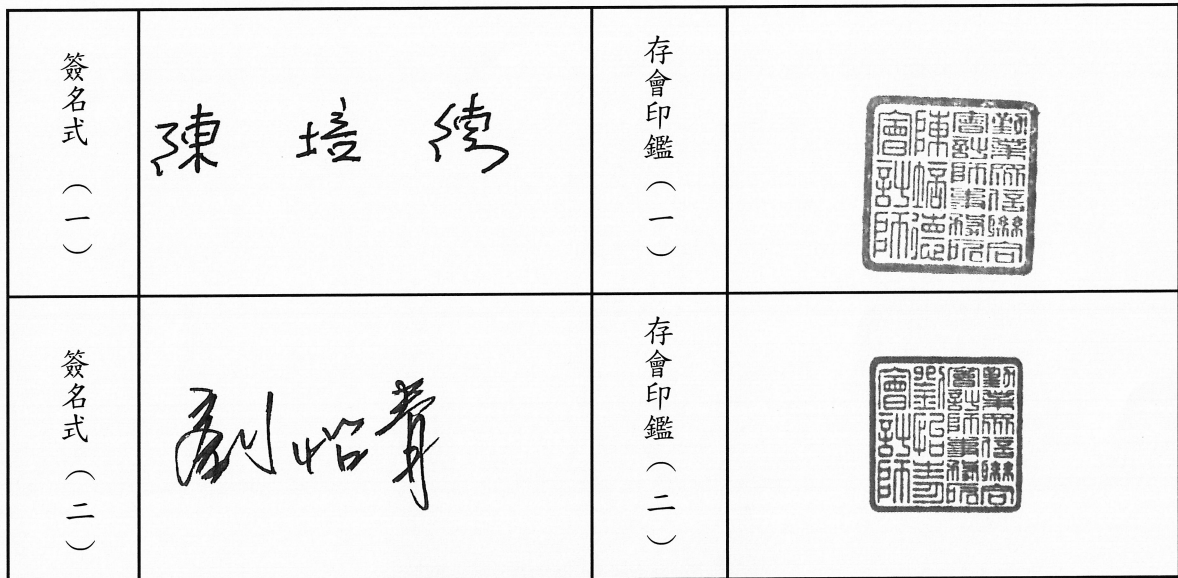 簽名式（一）
陳培德
存會印鑑（一）
勤業眾信聯合
會計師事務所
陳培德
會計師
簽名式（二）
劉怡青
存會印鑑（二）
勤業眾信聯合
會計師事務所
劉怡青
會計師